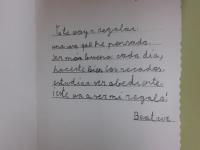 Yo te voy a regalar
una vez que he pensado
ser mas buena cada dia,
hacerte bien los recados,
estudiar ser obediente.
¡Este va a ser mi regalo!
Beatriz